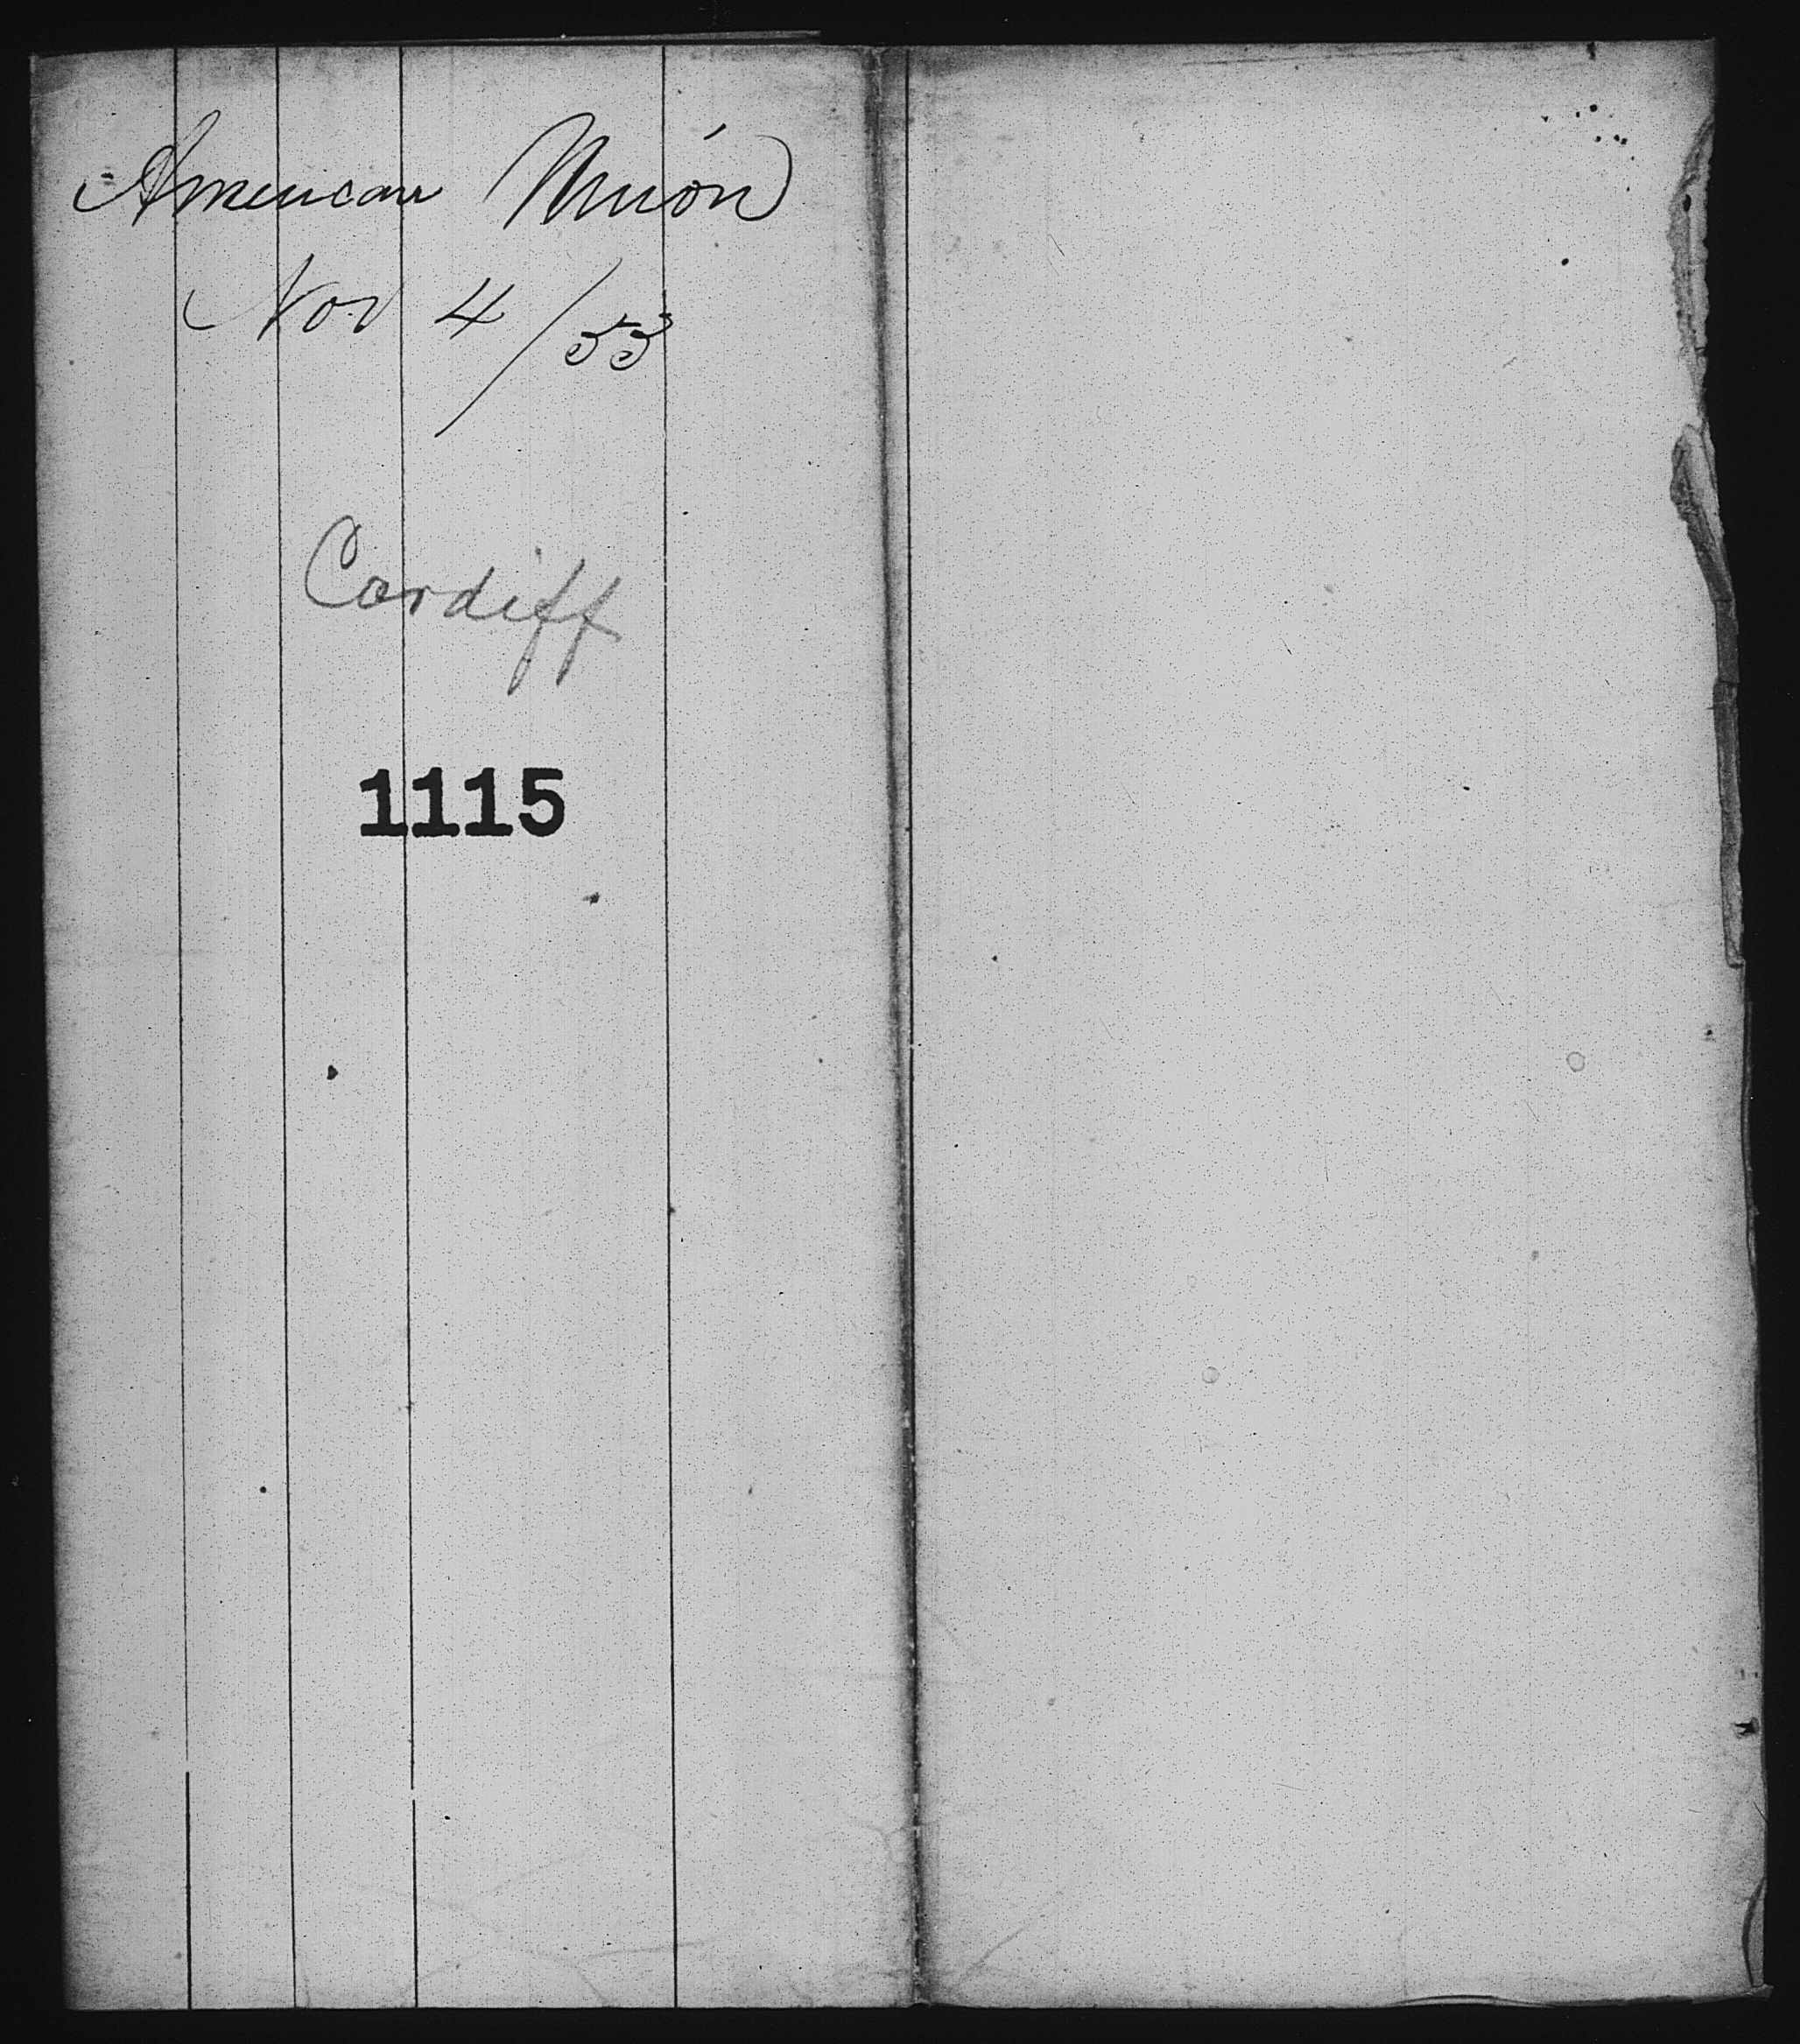 American Union
Nov 4/53
Cardiff
1115